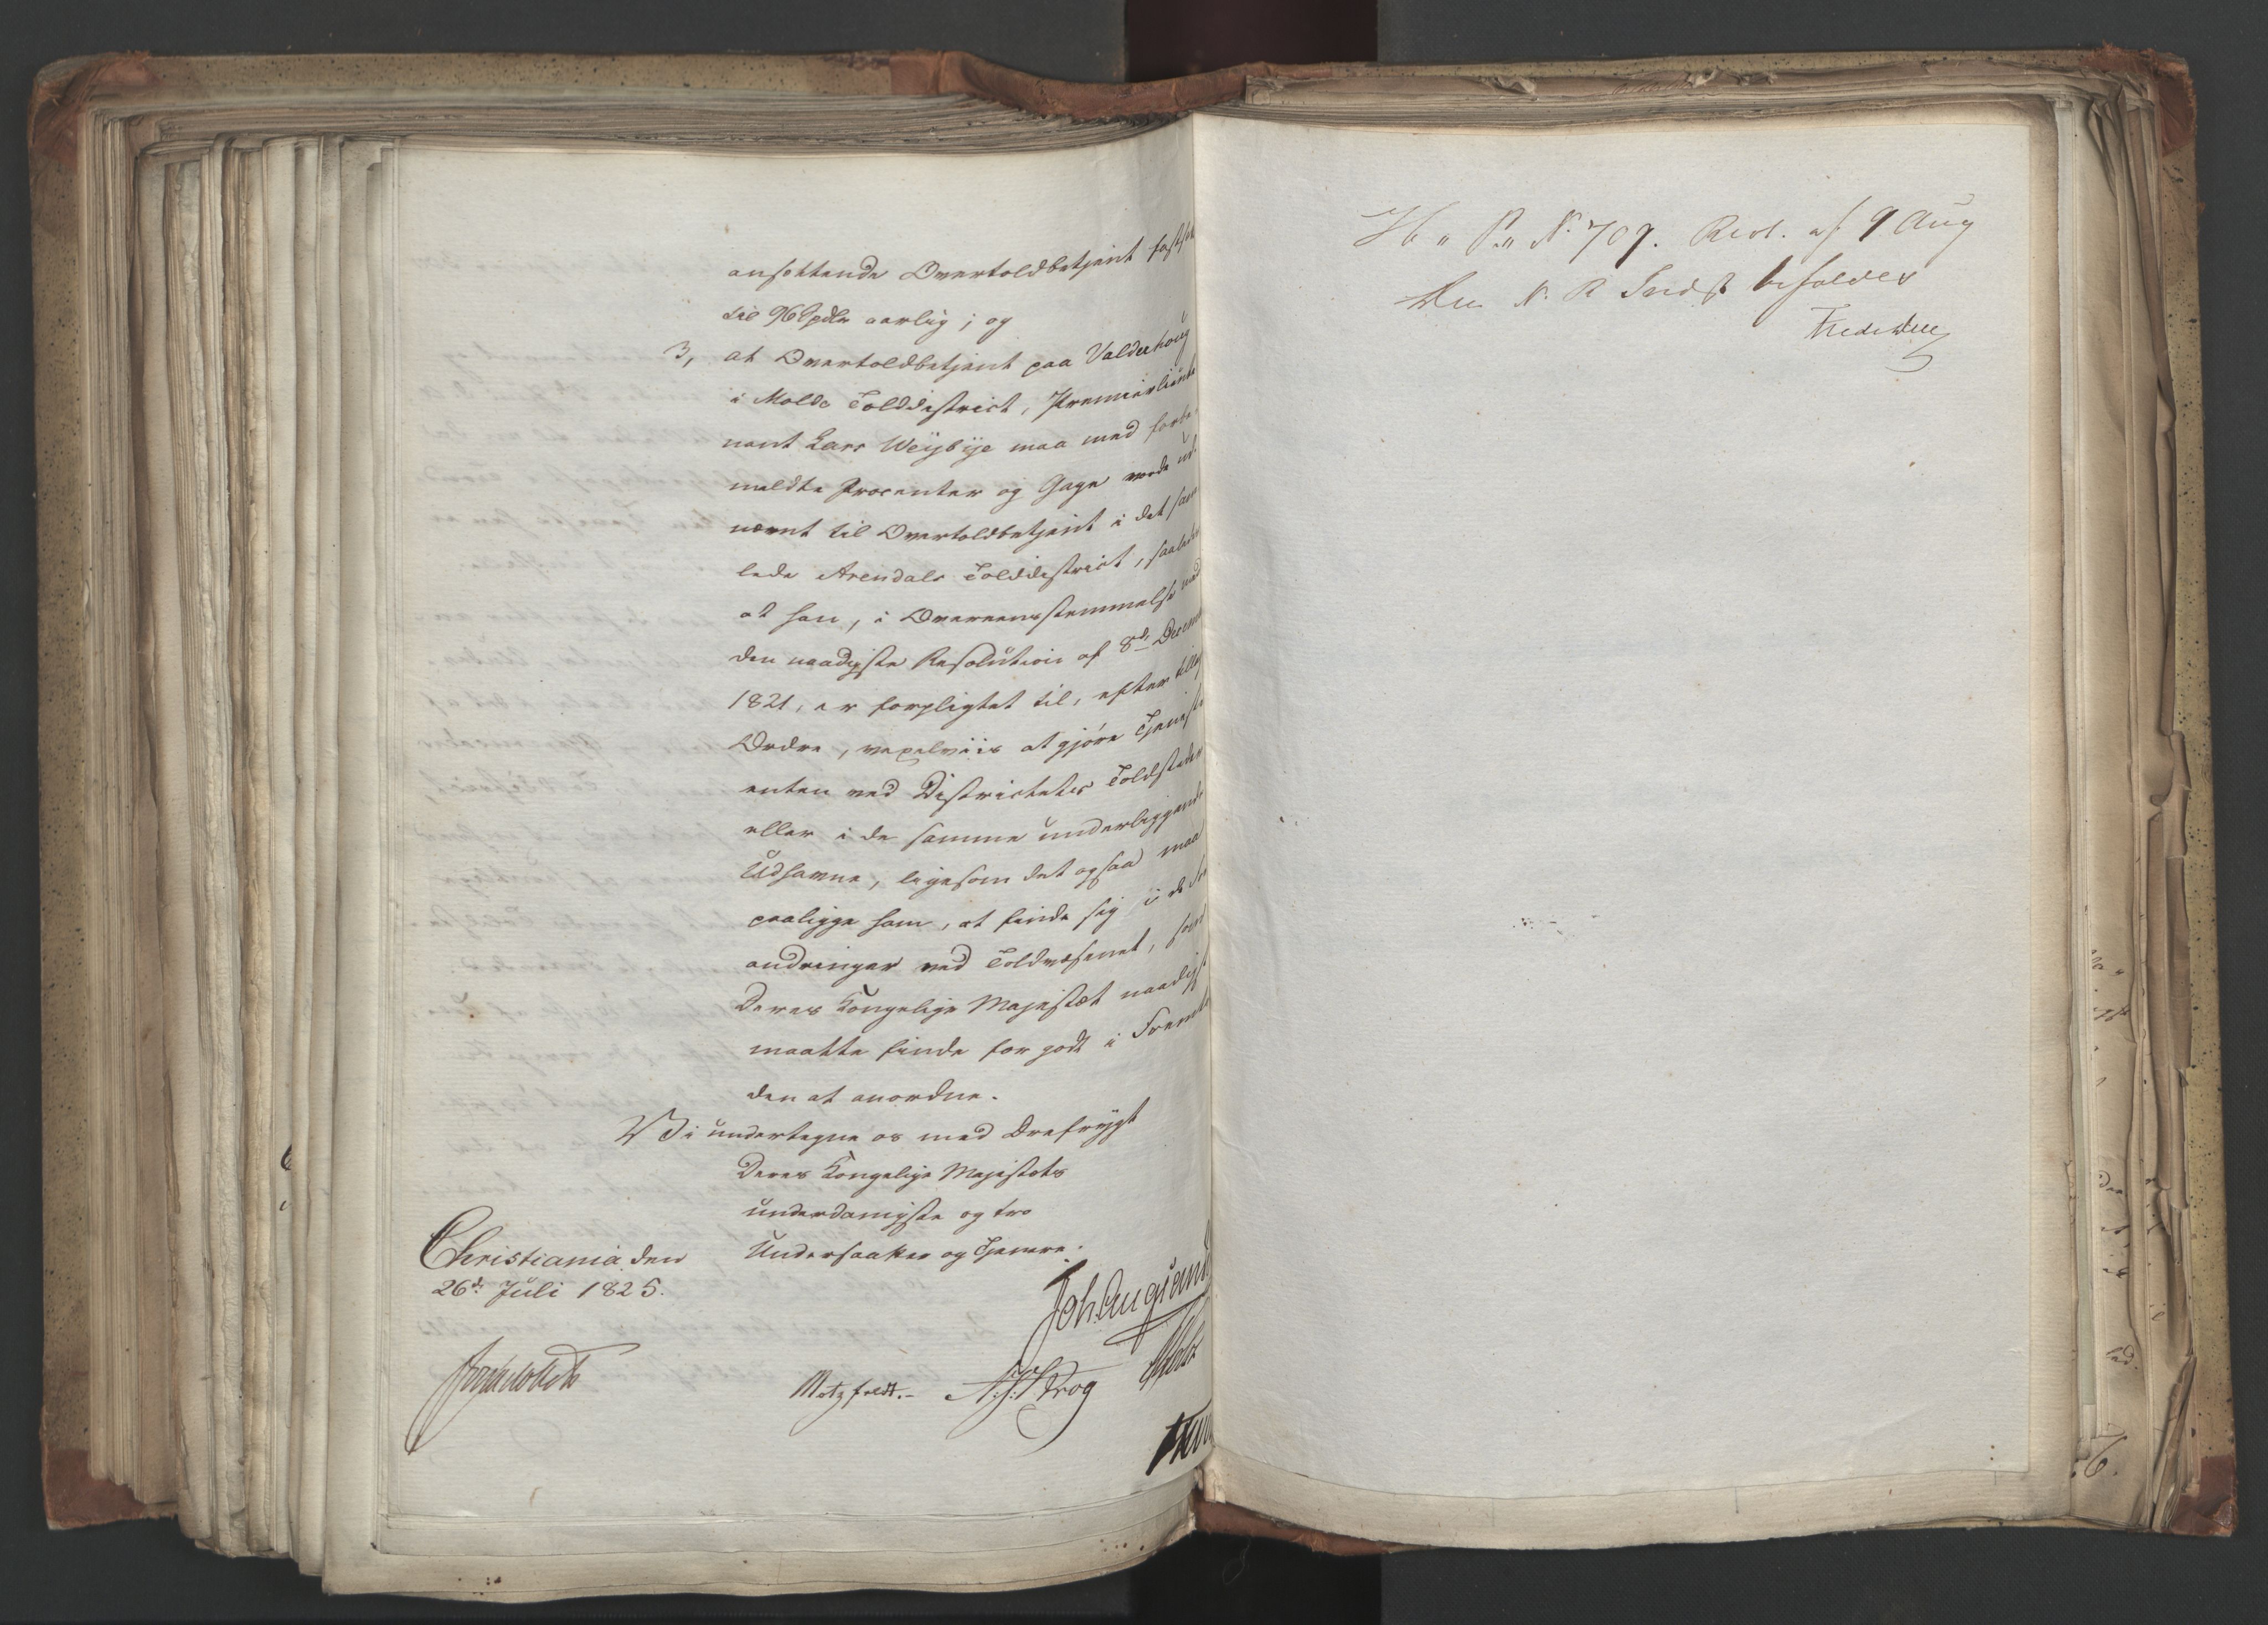 ansættende Overtoldbetjent fastsæt
til 96 Spdlr aarlig; og
3, at Overtoldbetjent paa Valderhoug
i Molde Tolddistrict, Premierlieute
nant Lars Weÿbÿe maa med forbe-
meldte Procenter og Gage vorde ud-
nævnt til Overtoldbetjent i det sam
lede Arendals Tolddistrict, saaledes
at han, i Overeensstemmelse med
den naadigste Resolution af 8de Decem
1821, er forpligtet til, efter
Ordre, vexelviis at gjøre Tjeneste
enten ved Districtets Toldsteder
eller i de samme underliggende
Udhavne, ligesom det ogsaa maa
paaligge ham, at finde sig i de For
andringer ved Toldvæsenet, som
Deres Kongelige Majestæt naadigst
maatte finde for godt i Fremti
den at anordne.
Vi undertegne os med Ærefrygt
Deres Kongelige Majestæts
underdanigste og tro
Undersaatter og Tjenere.
Christiania den
26de Juli 1825.
Joh. Aug: Sand
Motzfeldt.- Krog
No 709. Resl. af 9 Aug
Den N. R Indst bifaldes